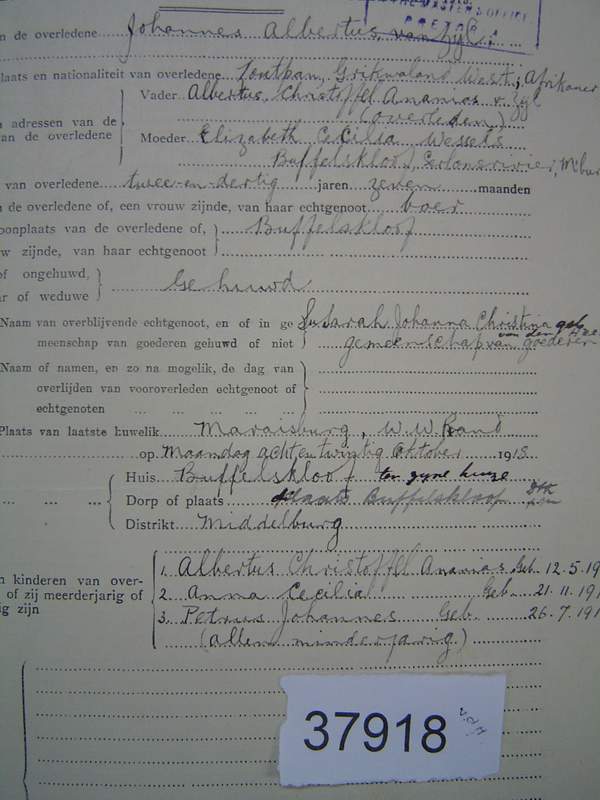 n de overledene Johannes Albertus van Zyl
laats en nationaliteit van overledene Zoutpan, Grikwaland West; Afrikaner
Vader Albertus Christoffel Ananias v. Zyl
(overleden)
n adressen van de
an de overledene
Moeder Elizabeth Cecilia Wessels
Buffelskloof, M'bur
van overledene twee-en-dertig jaren zeven maanden
n de overledene of, een vrouw zijnde, van haar echtgenoot boer
oonplaats van de overledene of,
w zijnde, van haar echtgenoot
Buffelskloof
of ongehuwd,
ar of weduwe
Gehuwd
Naam van overblijvende echtgenoot, en of in ge
meenschap van goederen gehuwd of niet
Sarah Johanna Christina geb.
van den
gemeenschap van goederen
Naam of namen, en zo na mogelik, de dag van
overlijden van vooroverleden echtgenoot of
echtgenoten
Plaats van laatste huwelik Maraisburg, W.W. Rand
op Maandag acht en twintig Oktober 191
Huis Buffelskloof ten zyne huize
Dorp of plaats plaats Buffelskloof
Distrikt Middelburg
n kinderen van over-
of zij meerderjarig of
ig zijn
1. Albertus Christoffel Ananias Geb. 12.5.19
2. Anna Cecilia Geb. 21.11.191
3. Petrus Johannes Geb. 26.7.191
(allen minderjarig)
37918